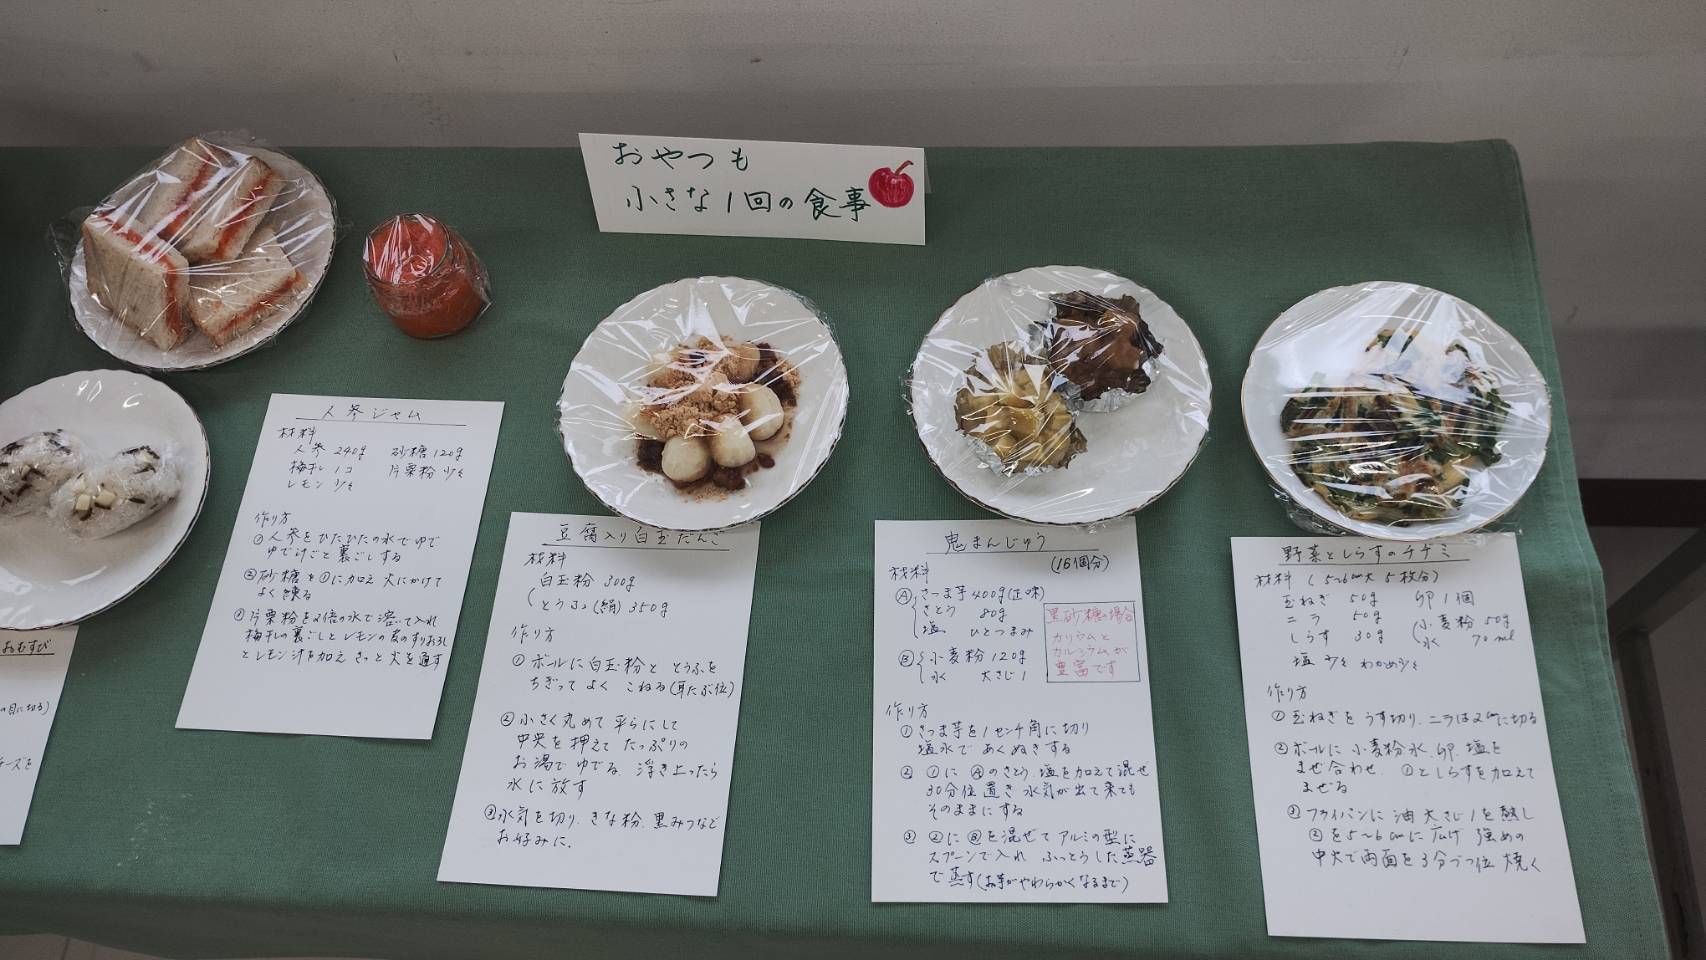 おやつも
小さな1回の食事
おむすび
の目に切る)
チーズを
人参ジャム
材料
人参 240g 砂糖 120g
梅干し 1コ 片栗粉 少々
レモン 少々
作り方
① 人参をひたひたの水でゆで
ゆでけごと裏ごしする
② 砂糖を①に加え 火にかけて
よく練る
③ 片栗粉を2倍の水で溶いて入れ
梅干しの裏ごしとレモンの皮のすりおろし
とレモン汁を加え さっと火を通す
豆腐入り白玉だんご
材料
白玉粉 300g
とうふ(絹) 350g
作り方
① ボールに白玉粉と とうふを
ちぎって よく こねる(耳たぶ位)
② 小さく丸めて 平らにして
中央を押えて たっぷりの
お湯で ゆでる. 浮き上ったら
水に放す
③ 水気を切り. きな粉. 黒みつなど
お好みに.
鬼まんじゅう
(16個分)
材料
Ⓐ さつま芋 400g(正味)
さとう 80g
塩 ひとつまみ
Ⓑ 小麦粉 120g
水 大さじ1
黒砂糖の場合
カリウムと
カルシウムが
豊富です
作り方
① さつま芋を1センチ角に切り
塩水で あくぬきする
② ①に Ⓐのさとう. 塩を加えて混ぜ
30分位置き 水気が出て来ても
そのままにする
③ ②にⒷを混ぜて アルミの型に
スプーンで入れ ふっとうした蒸器
で蒸す(お芋がやわらかくなるまで)
野菜としらすのチヂミ
材料 (5~6cm大 5枚分)
玉ねぎ 50g 卵 1個
ニラ 50g 小麦粉 50g
しらす 30g 水 70ml
塩 少々 わかめ少々
作り方
① 玉ねぎを うす切り. ニラは2cmに切る
② ボールに 小麦粉 水. 卵. 塩を
まぜ合わせ. ①としらすを加えて
まぜる
③ フライパンに 油 大さじ1を熱し
②を5~6cmに広げ 強めの
中火で両面を3分づつ位 焼く